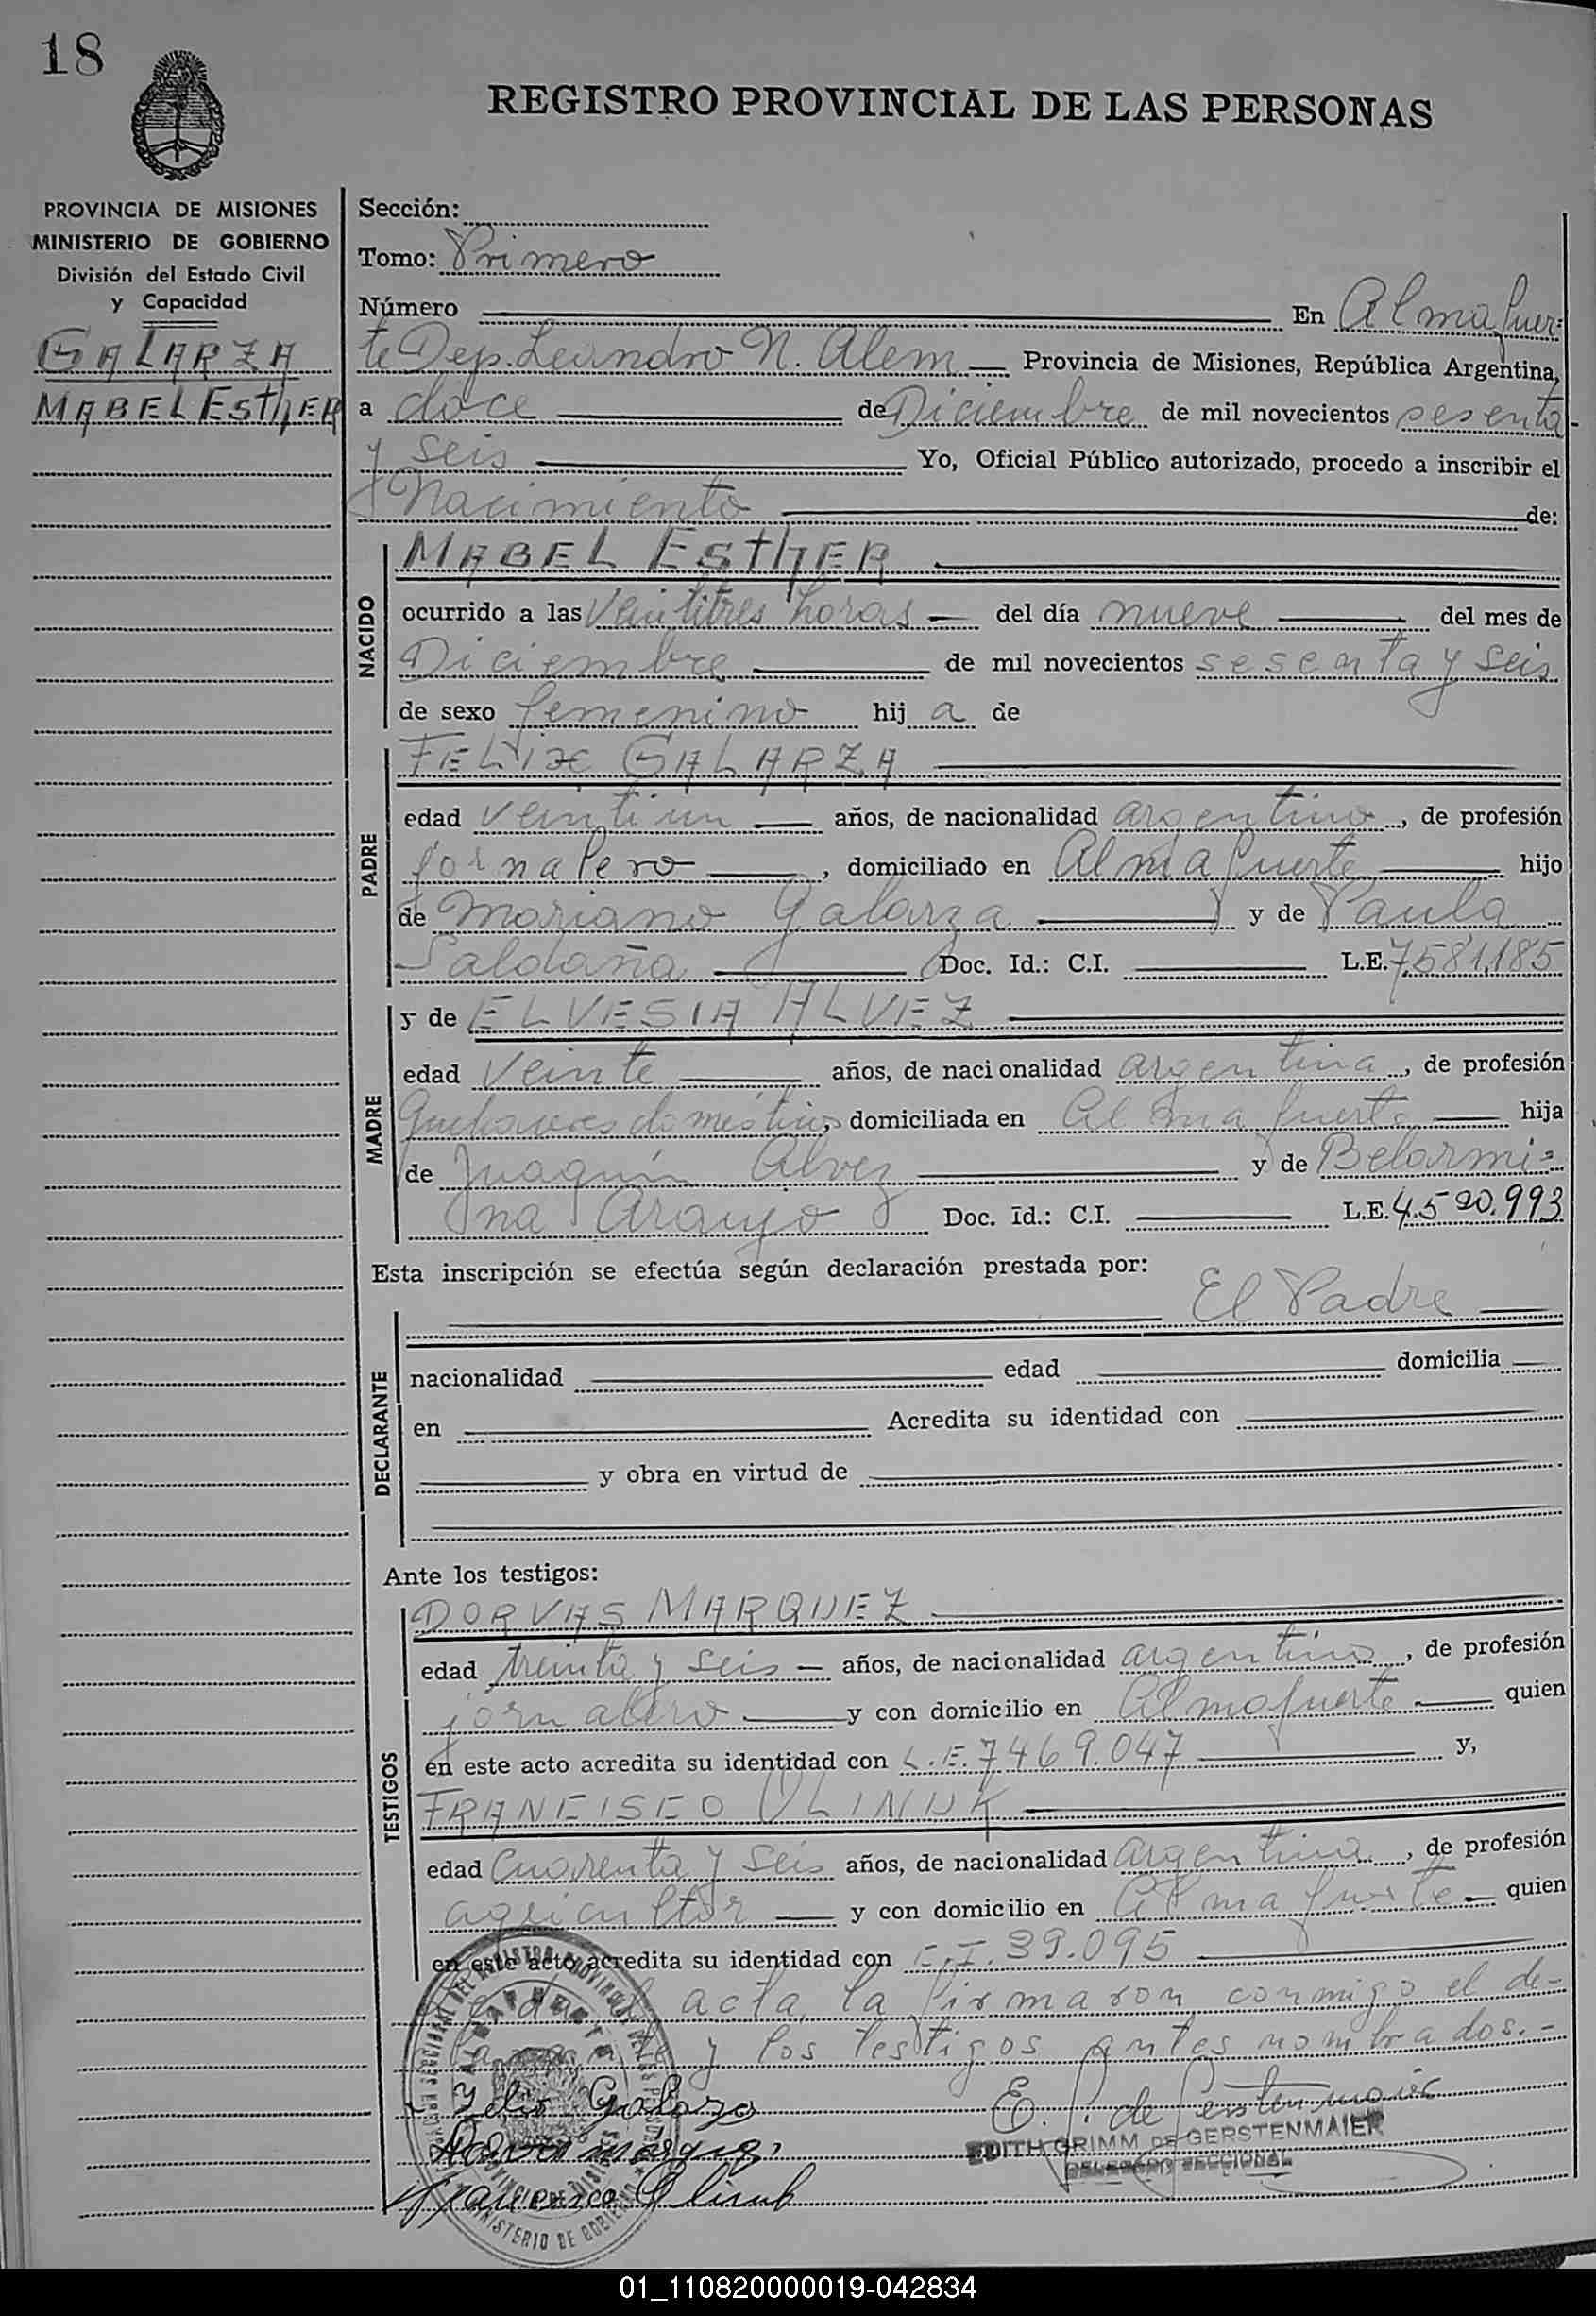 18
REGISTRO PROVINCIAL DE LAS PERSONAS
PROVINCIA DE MISIONES
MINISTERIO DE GOBIERNO
División del Estado Civil
y Capacidad
GALARZA
MABEL ESTHER
Sección:
Tomo: Primero
Número En Almafuer-
te Dep. Leandro N. Alem Provincia de Misiones, República Argentina,
a doce de Diciembre de mil novecientos sesenta
y seis Yo, Oficial Público autorizado, procedo a inscribir el
Nacimiento de:
NACIDO
MABEL ESTHER
ocurrido a las veintitres horas del día nueve del mes de
Diciembre de mil novecientos sesenta y seis
de sexo femenino hij a de
PADRE
FELIX GALARZA
edad veintiun años, de nacionalidad argentino, de profesión
jornalero, domiciliado en Almafuerte hijo
de Mariano Galarza y de Paula
Saldaña Doc. Id.: C.I. L.E. 7.581.185
MADRE
y de ELVESIA ALVEZ
edad veinte años, de nacionalidad argentina, de profesión
Quehaceres domésticos, domiciliada en Almafuerte hija
de Juaquín Alvez y de Belarmi-
na Araujo Doc. Id.: C.I. L.E. 4.590.993
Esta inscripción se efectúa según declaración prestada por:
El Padre
DECLARANTE
nacionalidad edad domicilia
en Acredita su identidad con
y obra en virtud de
Ante los testigos:
TESTIGOS
DORVAS MARQUEZ
edad treinta y seis años, de nacionalidad argentino, de profesión
jornalero y con domicilio en Almafuerte quien
en este acto acredita su identidad con L.E. 7469.047 y,
FRANCISCO OLINUK
edad cuarenta y seis años, de nacionalidad argentina, de profesión
agricultor y con domicilio en Almafuerte quien
en este acto acredita su identidad con C.I. 39.095
acta, la firmaron conmigo el de-
y los testigos antes nombrados.-
Felix Galarza
E. G. de Gerstenmaier
EDITH GRIMM DE GERSTENMAIER
DELEGADO SECCIONAL
Dorvas Marquez
Francisco Olinuk
ALMAFUERTE
MINISTERIO DE GOBIERNO
01_110820000019-042834